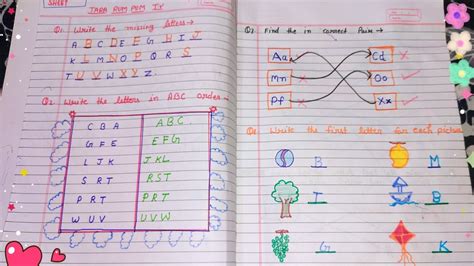 SHEET
TARA RUM PUM IX
Q1 Write the missing letters→
A B C D E F G H I J
K L M N O P Q R S
T U V W X Y Z.
Q2 Write the letters in ABC order→
C B A   A B C.
G F E   E F G
L J K   J K L
S R T   R S T
P R T   P R T
W U V   U V W
Q2 Find the in correct Pair→
Aa   Cd
Mn   Oo
Pf   Xx
Write the first letter for each picture
B   M
T   B
G   K